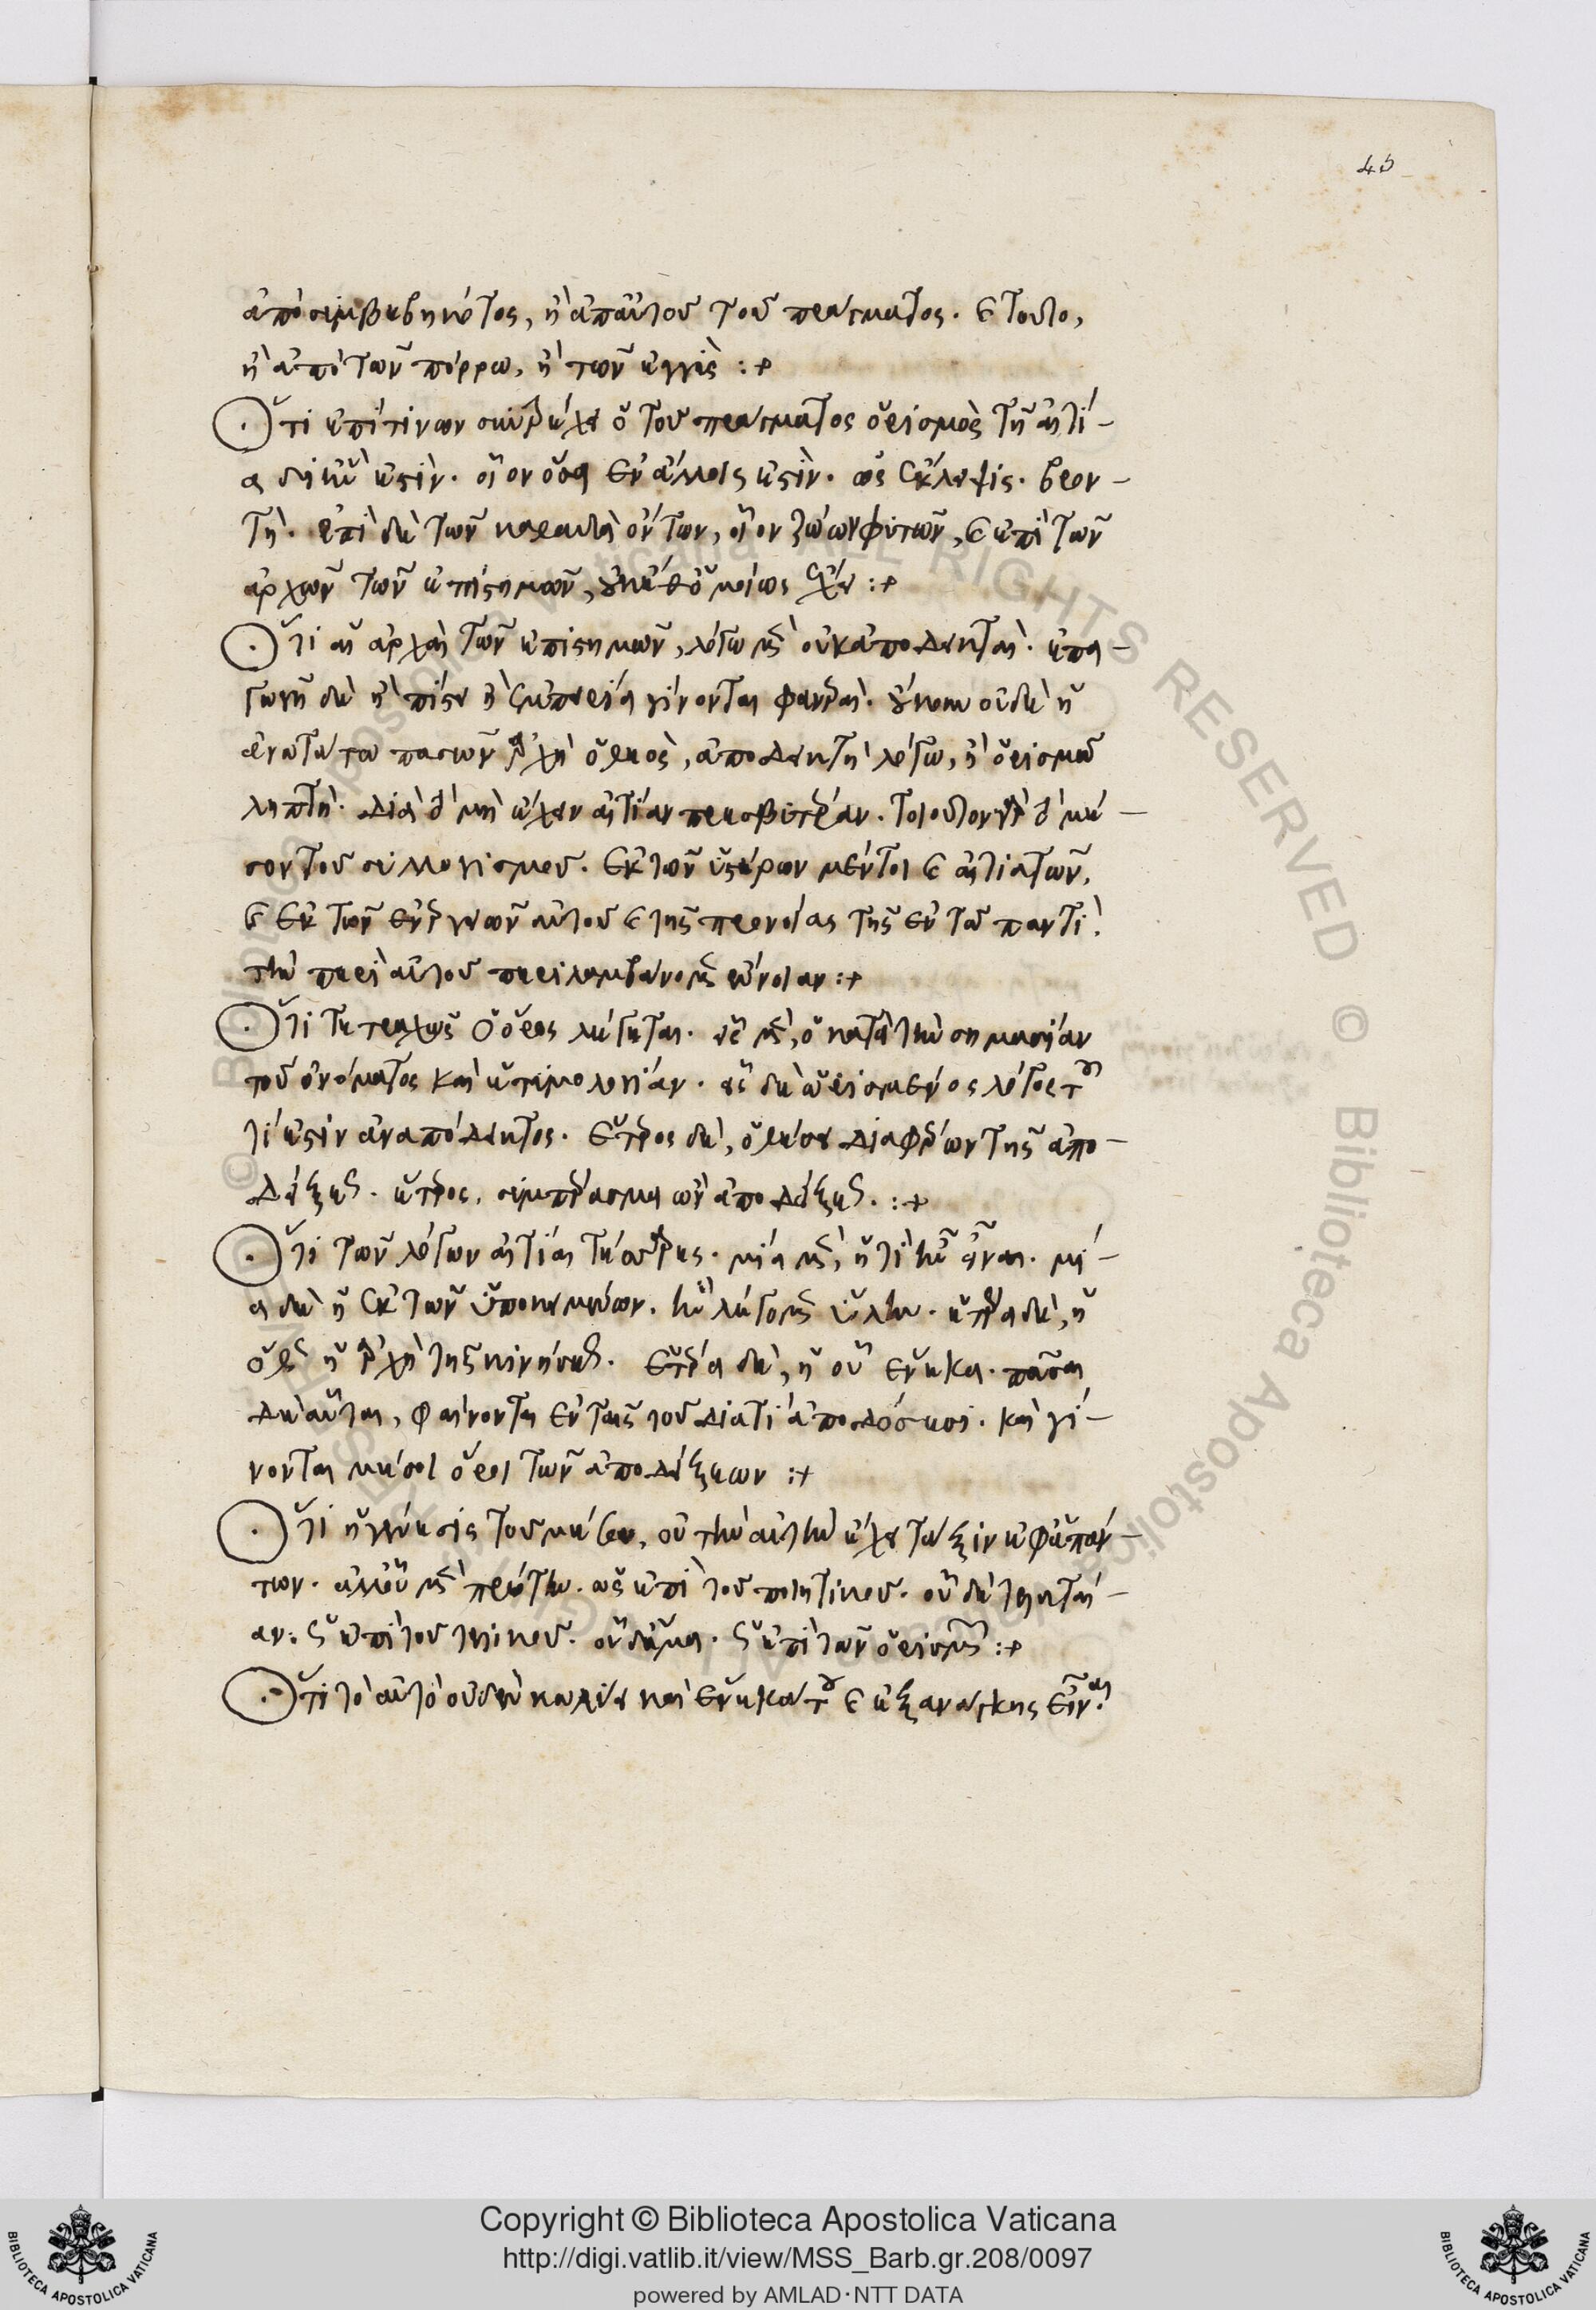 45
ἀπὸ συμβεβηκότος, ἢ ἀπ αὐτοῦ τοῦ πράγματος. καὶ τοῦτο,
ἢ ἀπὸ τῶν πόρρω, ἢ τῶν ἐγγὺς :+
Ὅτι ἐπί τινων συντρέχει ὁ τοῦ πράγματος ὁρισμὸς τῇ αἰτί-
α δι ἣν ἐστὶν. οἷον ὅσα ἐν ἄλλοις ἐστὶν. ὡς ἔκλειψις. βρον-
τή. ἐπὶ δὲ τῶν καθαυτὰ ὄντων, οἷον ζώων φυτῶν, καὶ ἐπὶ τῶν
ἀρχῶν τῶν ἐπιστημῶν, οὐκέθ ὁμοίως ἔχει :+
Ὅτι αἱ ἀρχαὶ τῶν ἐπιστημῶν, λόγω μὲν οὐκ ἀποδεικταὶ. ἐπα-
γωγῇ δὲ ἢ πίστει ἢ ἐμπειρία γίνονται φανεραὶ. οὔκουν οὐδὲ ἡ
ἀνωτάτω πασῶν ἀρχὴ ὁ θεὸς, ἀποδεικτὴ λόγω, ἢ ὁρισμῶ
ληπτὴ. διὰ τὸ μὴ ἔχειν αἰτίαν πρεσβυτέραν. τοιοῦτον γὰρ τὸ μέ-
σον τοῦ συλλογισμοῦ. ἐκ τῶν ὑστέρων μέντοι καὶ αἰτιατῶν,
καὶ ἐκ τῶν ἐνεργειῶν αὐτοῦ καὶ τῆς προνοίας τῆς ἐν τῶ παντὶ.
τὴν περὶ αὐτοῦ περιλαμβάνομεν ἔννοιαν :+
Ὅτι τετραχῶς ὁ ὅρος λέγεται. εἷς μὲν, ὁ κατὰ τὴν σημασίαν
τοῦ ὀνόματος καὶ ἐτυμολογίαν. εἷς δὲ ὡρισμένος λόγος τοῦ
τί ἐστὶν ἀναπόδεικτος. ἕτερος δὲ, ὁ θέσει διαφέρων τῆς ἀπο-
δείξεως. ἕτερος, συμπέρασμα ὢν ἀποδείξεως. :+
Ὅτι τῶν λόγων αἰτίαι τέσσαρες. μία μὲν, ἡ τί ἦν εἶναι. μί-
α δὲ ἡ ἐκ τῶν ὑποκειμένων. ἣν λέγομεν ὕλην. ἑτέρα δὲ, ἡ
ὅθεν ἡ ἀρχὴ τῆς κινήσεως. ἑτέρα δὲ, ἡ οὗ ἕνεκα. πᾶσαι
δὲ αὗται, φαίνονται ἐν ταῖς τοῦ διατί ἀποδόσεσι. καὶ γί-
νονται μέσοι ὅροι τῶν ἀποδείξεων :+
Ὅτι ἡ γένεσις τοῦ μέσου, οὐ τὴν αὐτὴν ἔχει τάξιν ἐφ ἁπάν-
των. ἀλλ οὗ μὲν πρώτην. ὡς ἐπὶ τοῦ ποιητικοῦ. οὗ δὲ τελευταί-
αν: ὡς ἐπὶ τοῦ τελικοῦ. οὗ δ ἅμα. ὡς ἐπὶ τῶν ὁρισμῶν :+
Ὅτι τὸ αὐτὸ οὐδὲν κωλύει καὶ ἕνεκά του καὶ ἐξ ἀνάγκης εἶναι.
Copyright © Biblioteca Apostolica Vaticana
http://digi.vatlib.it/view/MSS_Barb.gr.208/0097
powered by AMLAD·NTT DATA